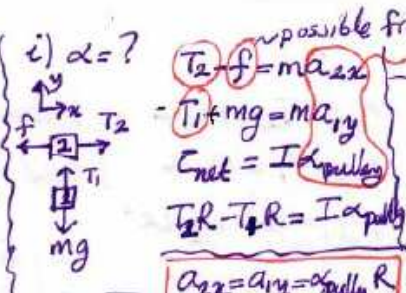 i) α=?
possible
y
x
f 2 T₂
T₁
mg
T₂-f=ma₂ₓ
-T₁+mg=ma₁y
τnet = Iαpulley
T₂R-T₁R=Iα
a₂ₓ=a₁y=αpulley R